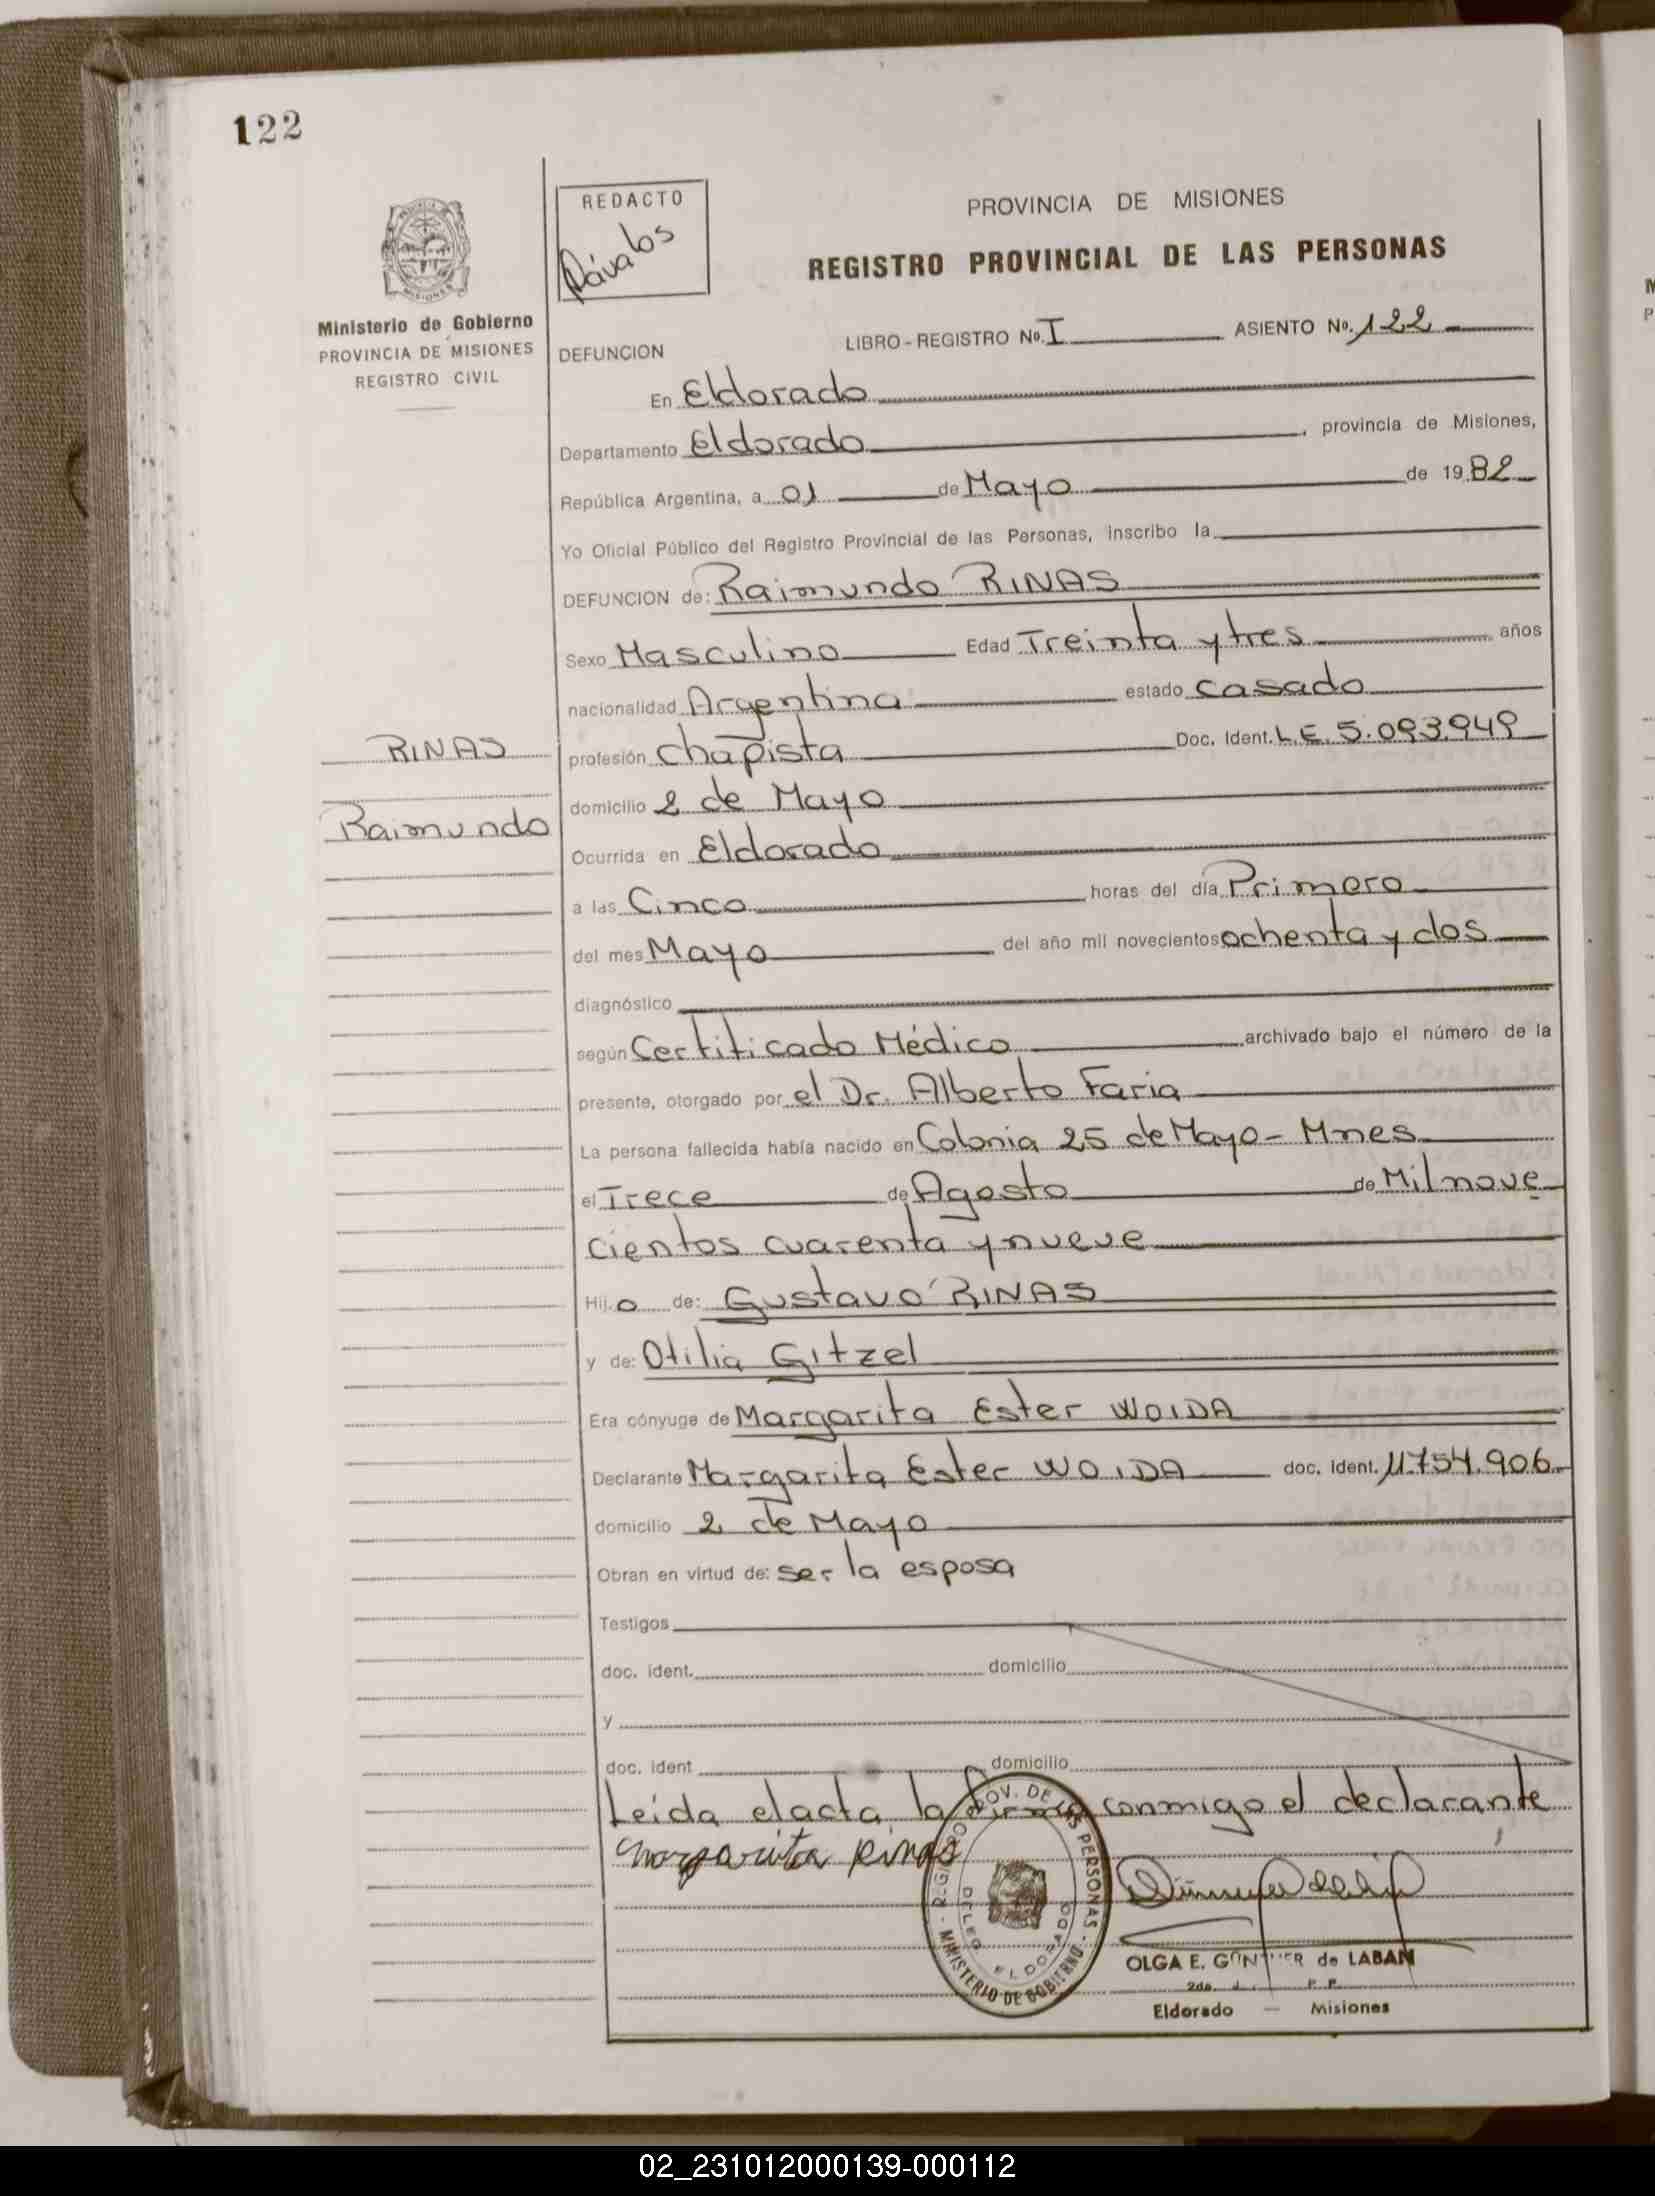 122
REDACTO
Dávalos
PROVINCIA DE MISIONES
REGISTRO PROVINCIAL DE LAS PERSONAS
PROVINCIA
MISIONES
Ministerio de Gobierno
PROVINCIA DE MISIONES
REGISTRO CIVIL
DEFUNCION LIBRO-REGISTRO No. I ASIENTO No. 122
En Eldorado
Departamento Eldorado, provincia de Misiones,
República Argentina, a 01 de Mayo de 1982
Yo Oficial Público del Registro Provincial de las Personas, inscribo la
DEFUNCION de: Raimundo RINAS
Sexo Masculino Edad Treinta y tres años
nacionalidad Argentina estado casado
RINAS
profesión chapista Doc. Ident. L.E. 5.093.949
domicilio 2 de Mayo
Raimundo
Ocurrida en Eldorado
a las Cinco horas del día Primero
del mes Mayo del año mil novecientos ochenta y dos
diagnóstico
según Certificado Médico archivado bajo el número de la
presente, otorgado por el Dr. Alberto Faria
La persona fallecida había nacido en Colonia 25 de Mayo - Mnes
el Trece de Agosto de Mil nove
cientos cuarenta y nueve
Hijo de: Gustavo RINAS
y de: Otilia Gitzel
Era cónyuge de Margarita Ester WOIDA
Declarante Margarita Ester WOIDA doc. ident. 11.754.906
domicilio 2 de Mayo
Obran en virtud de: ser la esposa
Testigos
doc. ident. domicilio
y
doc. ident domicilio
Leída el acta, la firma conmigo el declarante
Margarita Rinas
PROV. DE LAS PERSONAS
MINISTERIO DE GOBIERNO
DELEG. ELDORADO
OLGA E. GUNTHER de LABAN
Eldorado — Misiones
02_231012000139-000112